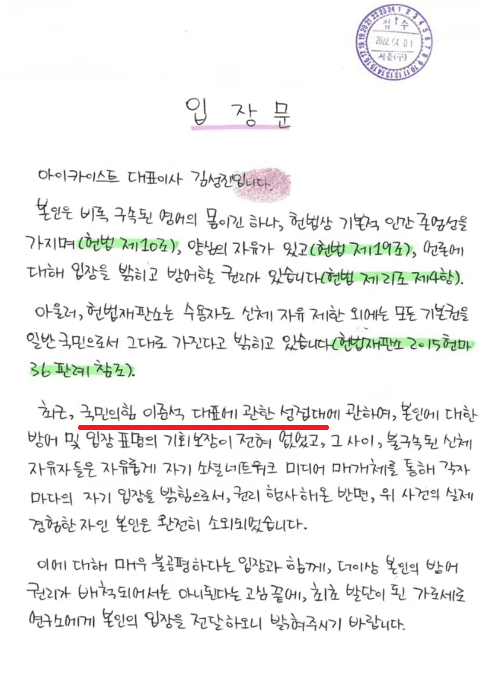 접수
2022.04.01
입장문
아이카이스트 대표이사 김성진입니다.
본인은 비록 구속된 영어의 몸이긴 하나, 헌법상 기본적 인간 존엄성을
가지며(헌법 제10조), 양심의 자유가 있고(헌법 제19조), 언론에
대해 입장을 밝히고 방어할 권리가 있습니다(헌법 제21조 제4항).
아울러, 헌법재판소는 수용자도 신체 자유 제한 외에는 모든 기본권을
일반 국민으로서 그대로 가진다고 밝히고 있습니다(헌법재판소 2015헌마
36 판례 참조).
최근, 국민의힘 이준석 대표에 관한 성접대에 관하여, 본인에 대한
방어 및 입장 표명의 기회보장이 전혀 없었고, 그 사이, 불구속된 신체
자유자들은 자유롭게 자기 소셜네트워크 미디어 매개체를 통해 각자
마다의 자기 입장을 밝힘으로서, 권리 행사해온 반면, 위 사건의 실제
경험한 자인 본인은 완전히 소외되었습니다.
이에 대해 매우 불공평하다는 입장과 함께, 더이상 본인의 방어
권리가 배척되어서는 아니된다는 고심 끝에, 최초 발단이 된 가로세로
연구소에게 본인의 입장을 전달하오니 밝혀주시기 바랍니다.